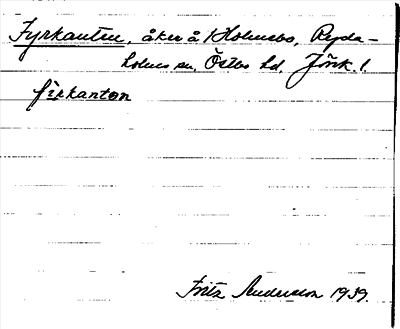 Fyrkanten, åker å 1 Holmsbo, Ryda-
holms sn, Östbo hd, Jönk. l.
firkantən
Fritz Anderson 1939.